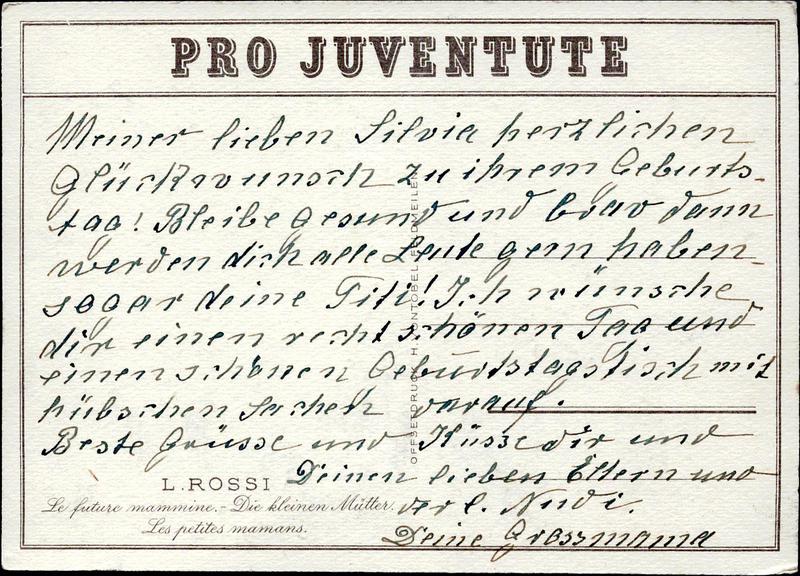 PRO JUVENTUTE
Meiner lieben Silvia herzlichen
Glückwunsch zu ihrem Geburts-
tag! Bleibe gesund und brav dann
werden dich alle Leute gern haben-
sogar deine Titi! Ich wünsche
dir einen recht schönen Tag und
einen schönen Geburtstagstisch mit
hübschen Sachen darauf.
Beste Grüsse und Küsse dir und
Deinen lieben Eltern und
der l. Nudi.
Deine Grossmama
L. ROSSI
Le future mammine.- Die kleinen Mütter.
Les petites mamans.
OFFSETDRUCK H. VONTOBEL FELDMEILEN